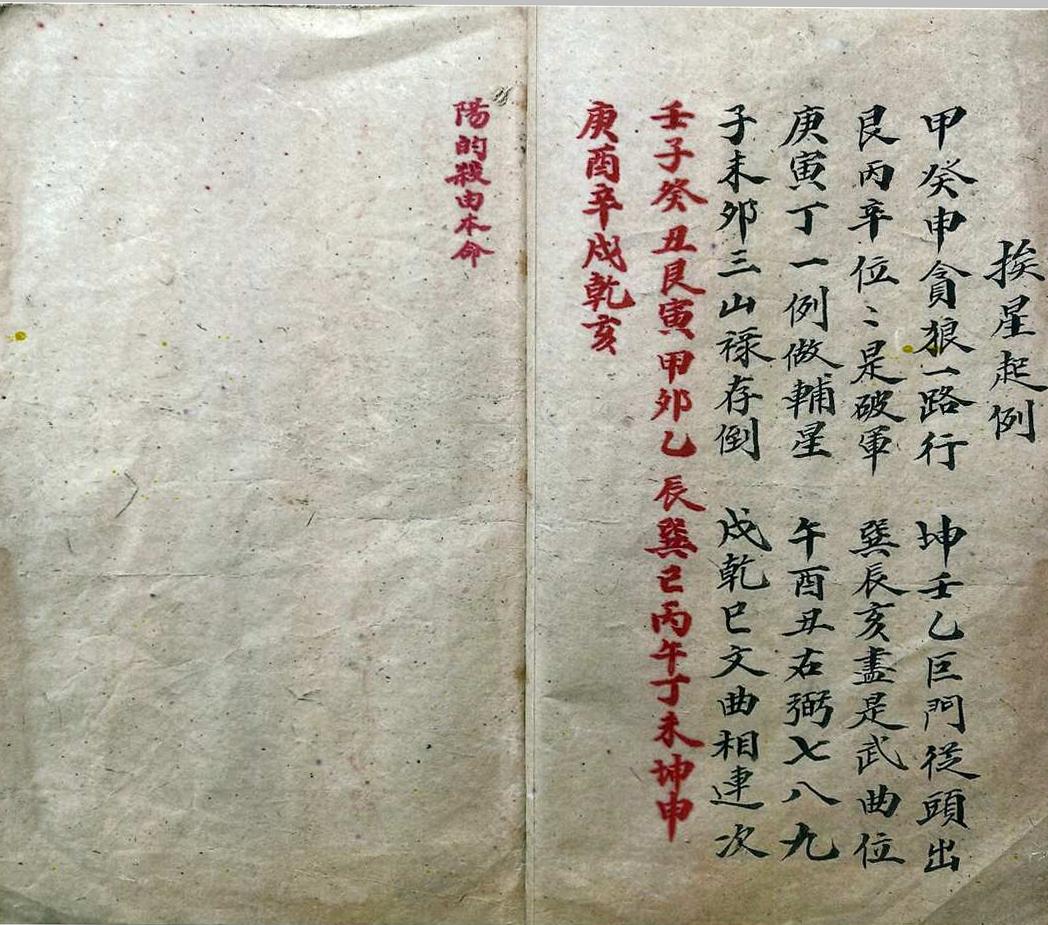 挨星起例
甲癸申貪狼一路行 坤壬乙巨門從頭出
艮丙辛位〻是破軍 巽辰亥盡是武曲位
庚寅丁一例做輔星 午酉丑右弼七八九
子未夘三山祿存倒 戍乾巳文曲相連次
壬子癸丑艮寅甲夘乙辰巽巳丙午丁未坤申
庚酉辛戍乾亥
陽的殺由本命